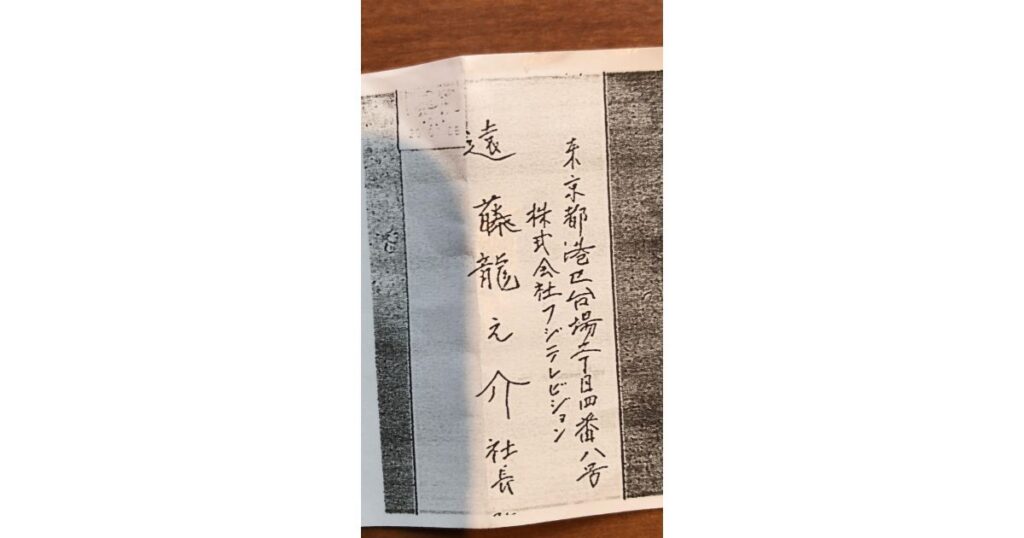 東京都港区台場二丁目四番八号
株式会社フジテレビジョン
遠藤龍之介社長